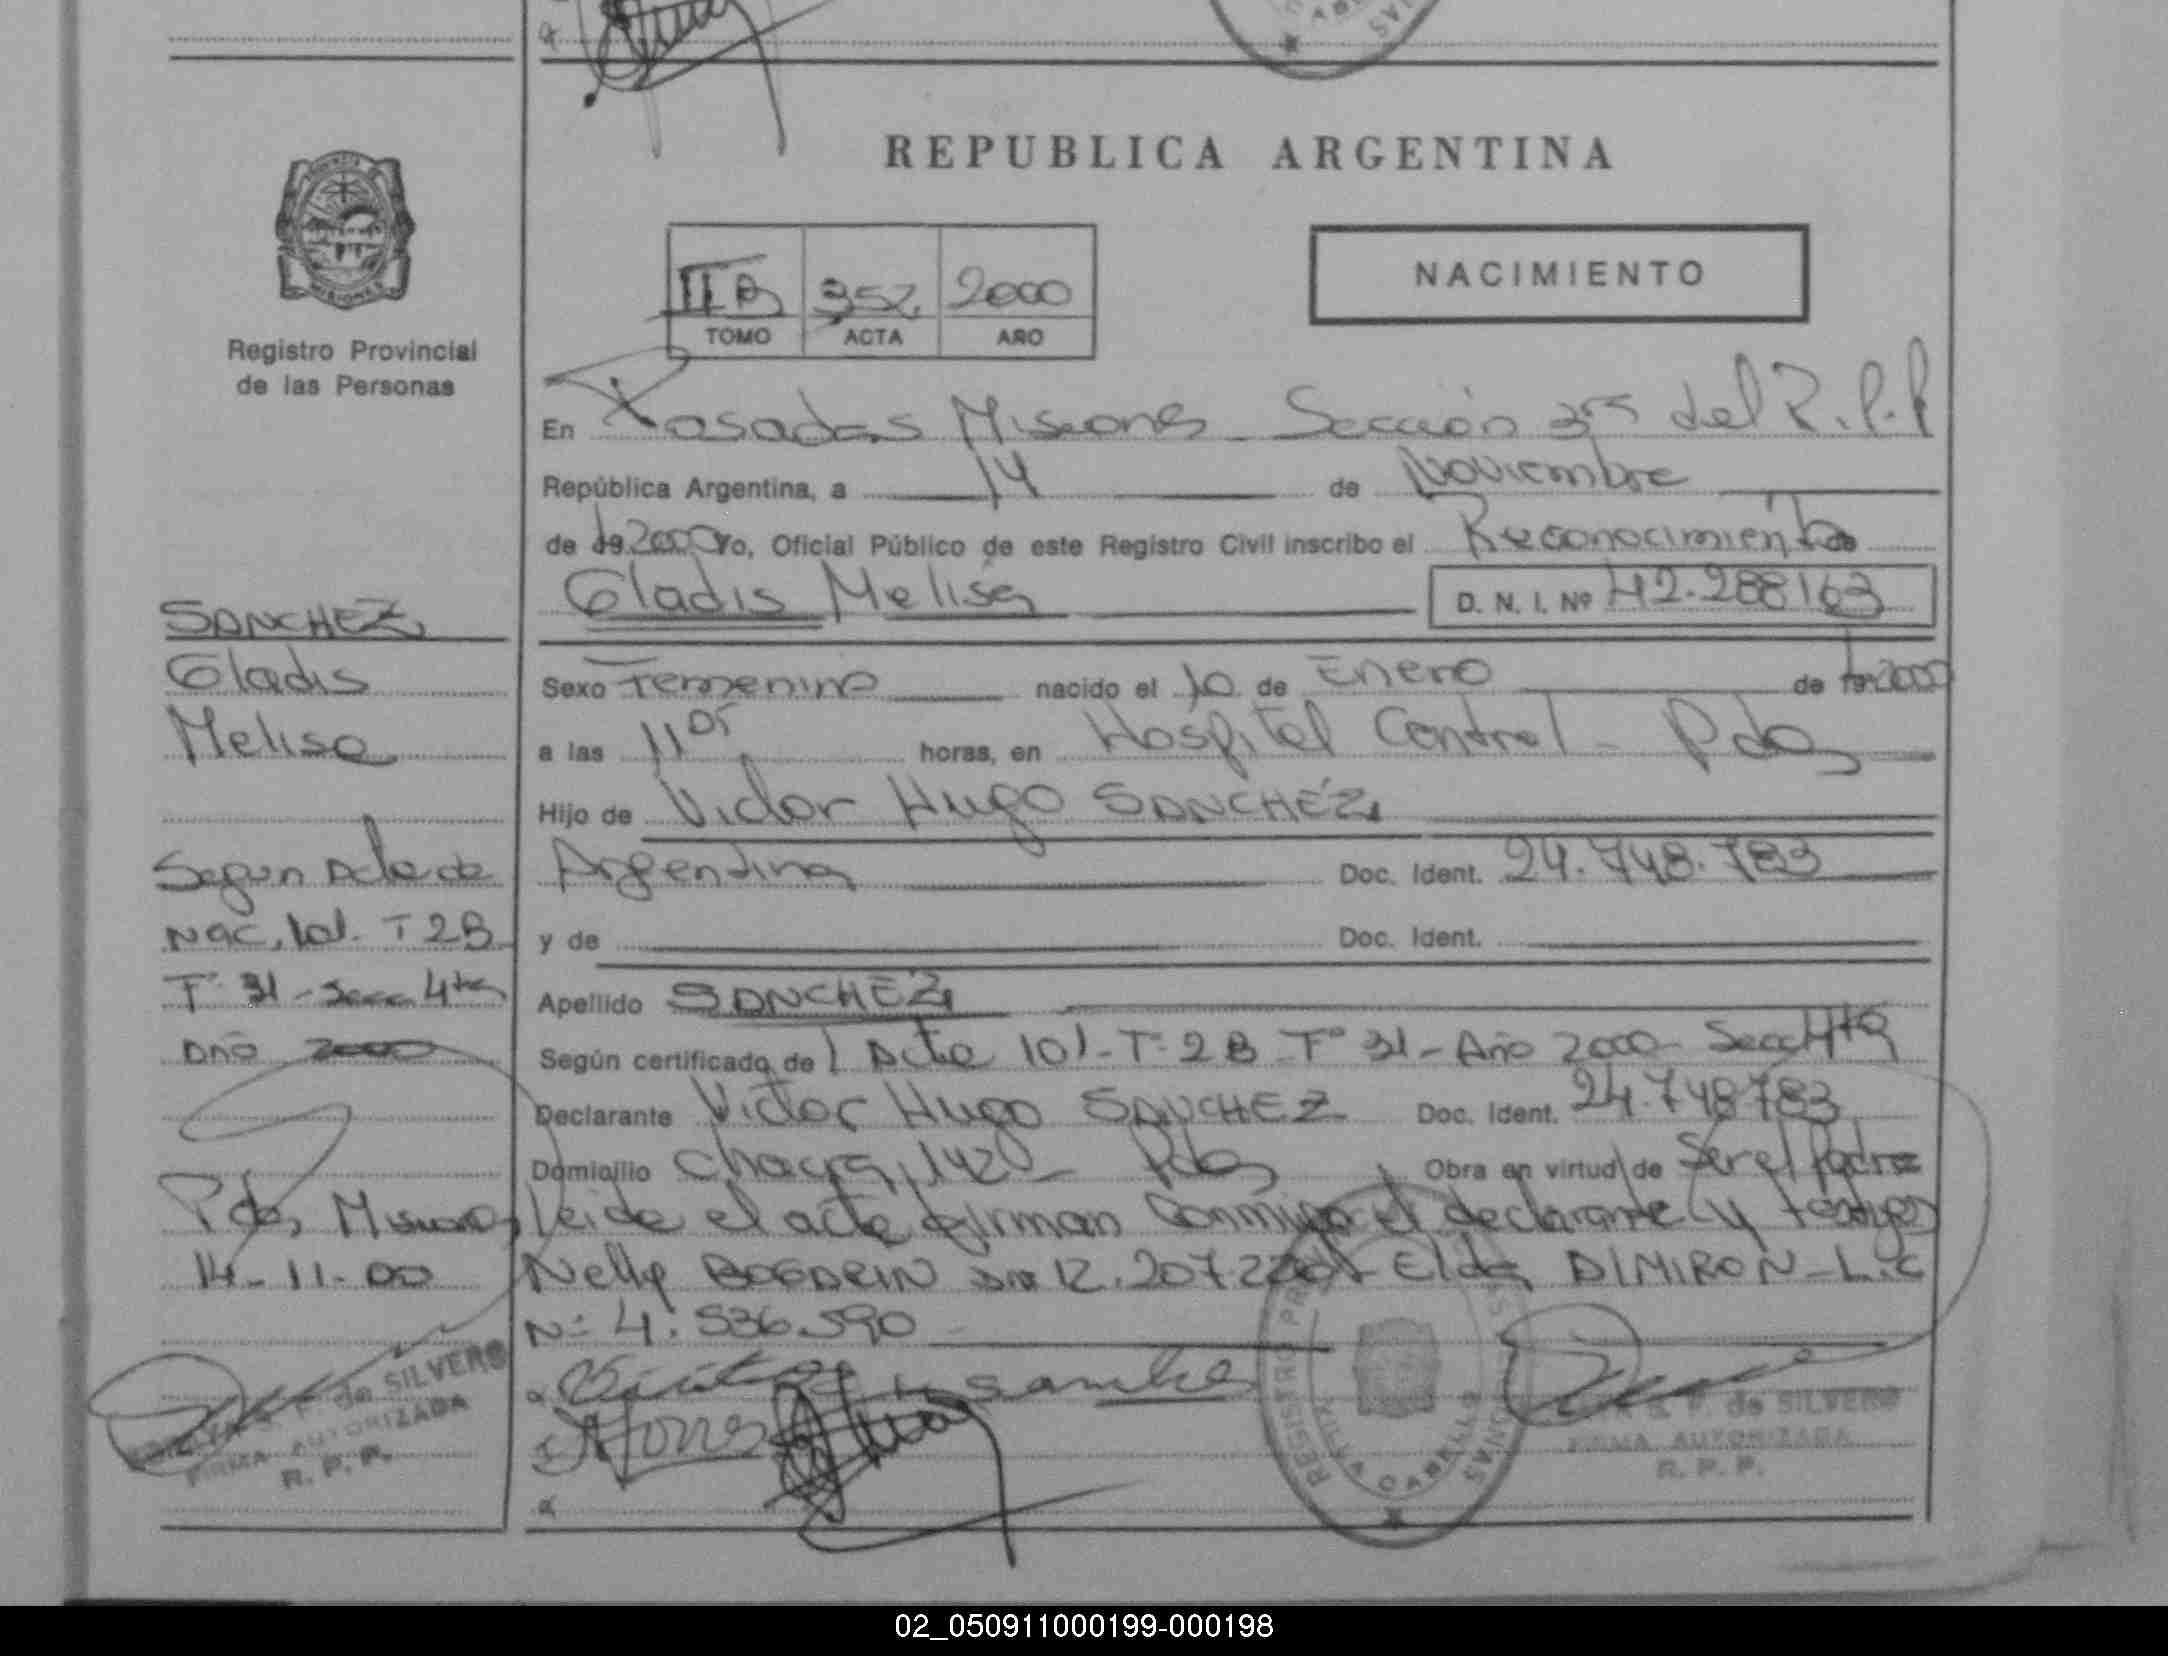 REPUBLICA ARGENTINA
NACIMIENTO
II B 352 2000
TOMO ACTA AÑO
Registro Provincial
de las Personas
En Posadas Misiones Sección 3ra del R.P.P
República Argentina, a 14 de Noviembre
de 19 2000 Yo, Oficial Público de este Registro Civil inscribo el Reconocimiento de
Gladis Melisa D. N. I. Nº 42.288163
SANCHEZ
Gladis
Melisa
Sexo Femenino nacido el 10 de Enero de 19 2000
a las 11 05 horas, en Hospital Central - Pdas
Hijo de Victor Hugo SANCHEZ
Argentina Doc. Ident. 24.748.783
y de Doc. Ident.
Apellido SANCHEZ
Según certificado de l Acta 101 - Tº 2B Fº 31 - Año 2000 Secc 4ta
Declarante Victor Hugo SANCHEZ Doc. Ident. 24.748783
Domicilio Chacra 1420 - Pdas Obra en virtud de Ser el Padre
Leida el acta firman conmigo el declarante y testigos
Nelly DNI 12.207.220 Elda DIMIRON - L.C
Nº 4.536.590
Segun Acta de
Nac. 101. T 2B
Fº 31 - Secc 4ta
Año 2000
Pdas Misiones
14-11-00
F. de SILVERO
FIRMA AUTORIZADA
R. P. P.
S. F. de SILVERO
FIRMA AUTORIZADA
R. P. P.
02_050911000199-000198